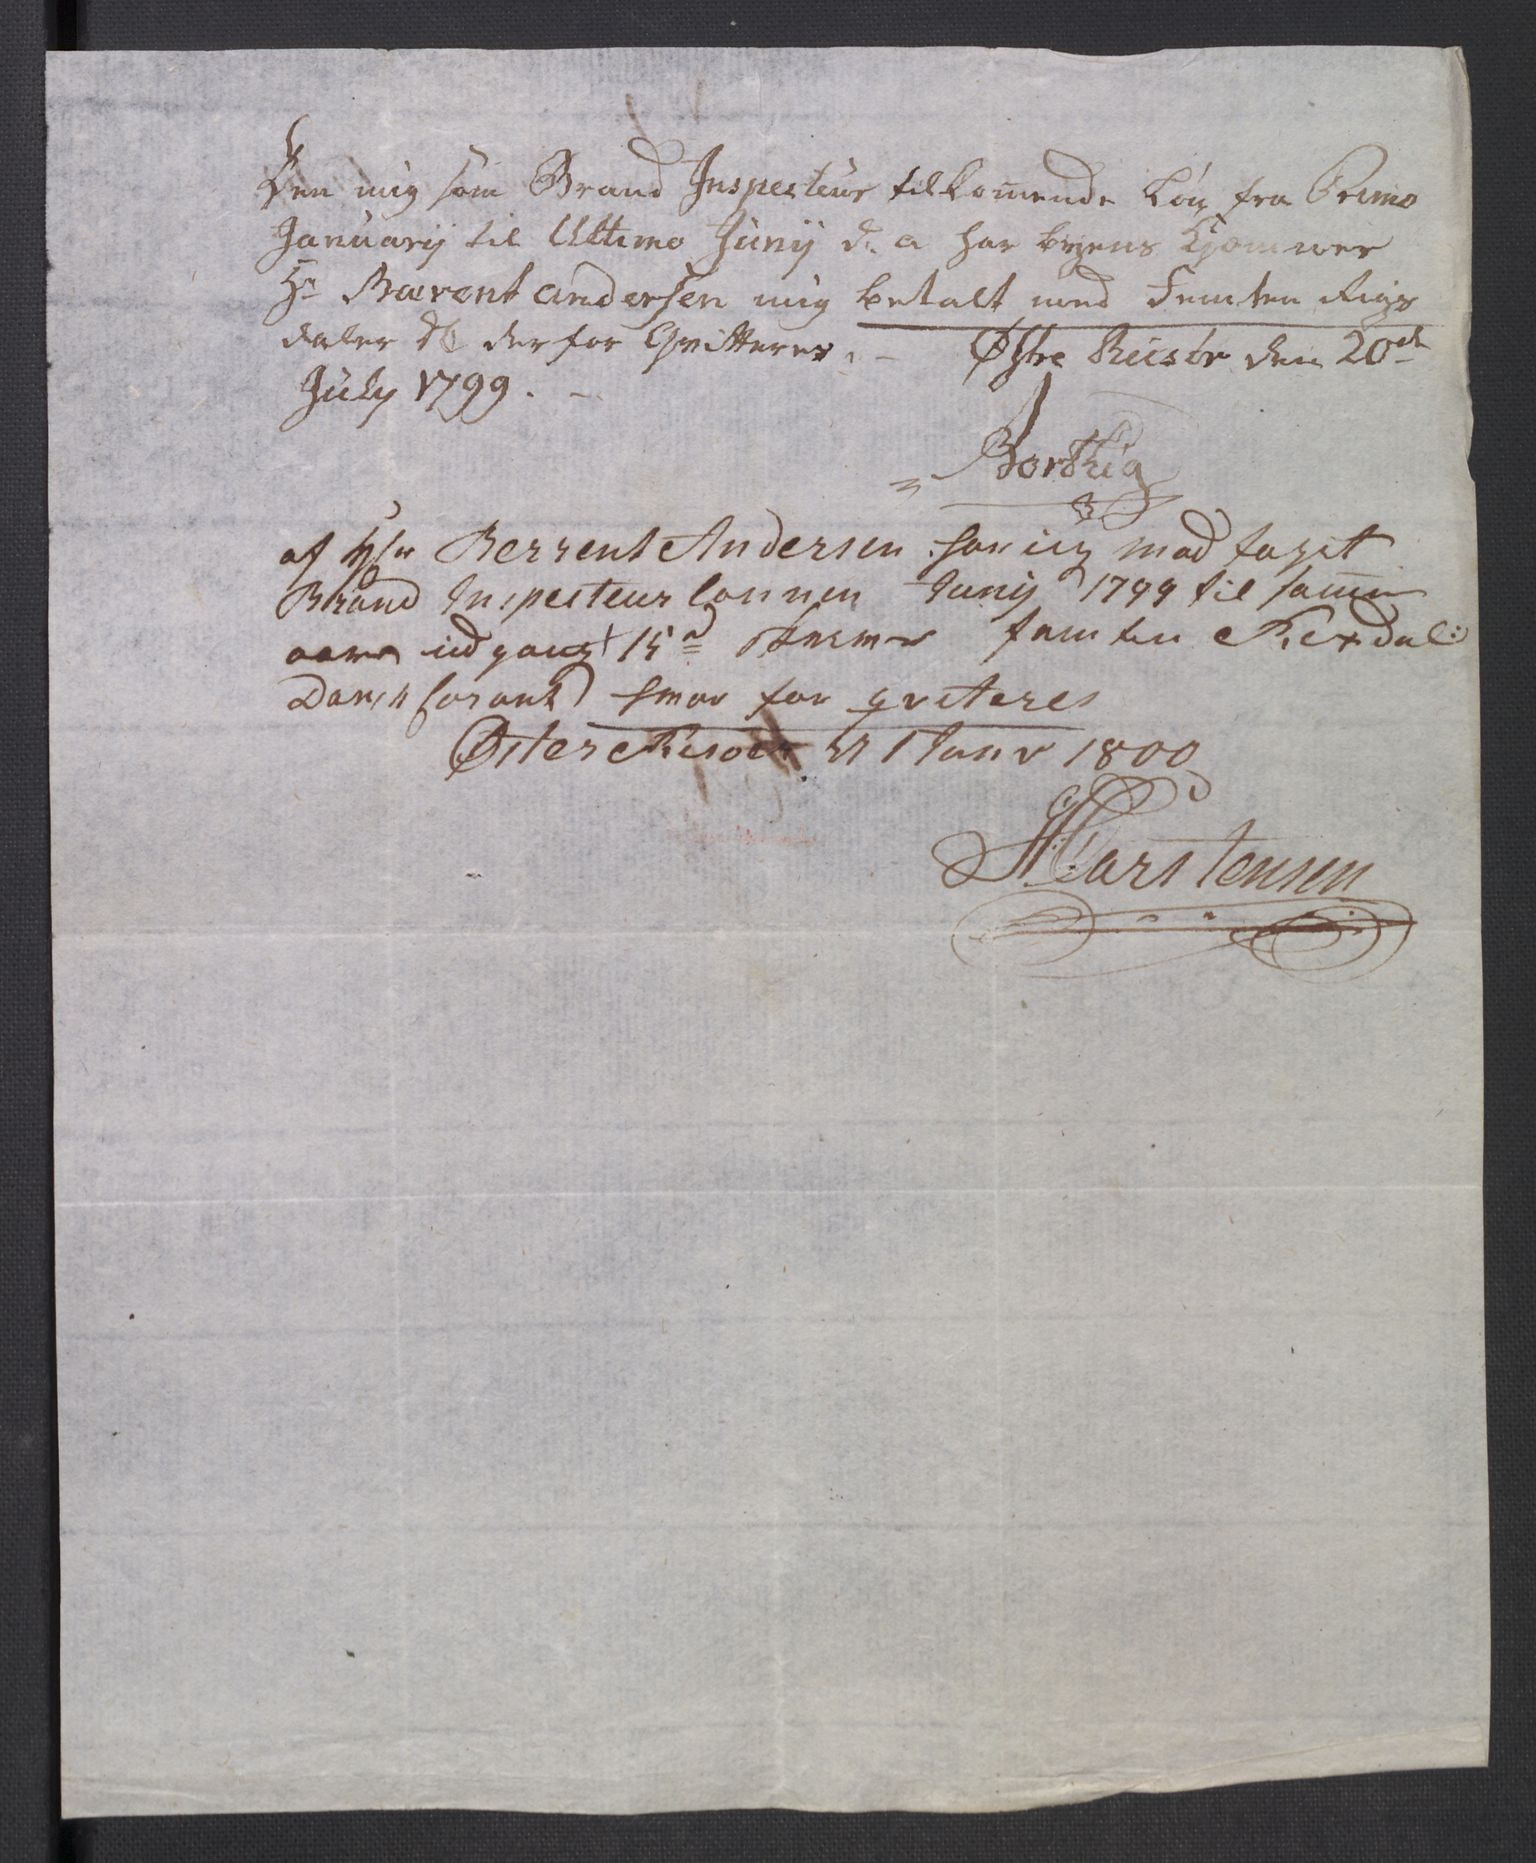 Den mig som Brand Inspecteur tilkomende Løn fra Primo
Januarij til Ultimo Junij d. a har byens Kjæmner
Hr Bærent Andersen mig betalt med Femten Rigs
daler der for Qvitteres. - Østre Riisør den 20de
July 1799. -
Borthig
af Hr Berrent Andersen har ieg mod taget
Brand Inspecteur lønnen Junij 1799 til samme
aars udgang 15 femten Rixdal:
Dansk Corant hvor for qviteres
Øster Riisøer 1 Janv 1800
Carstensen